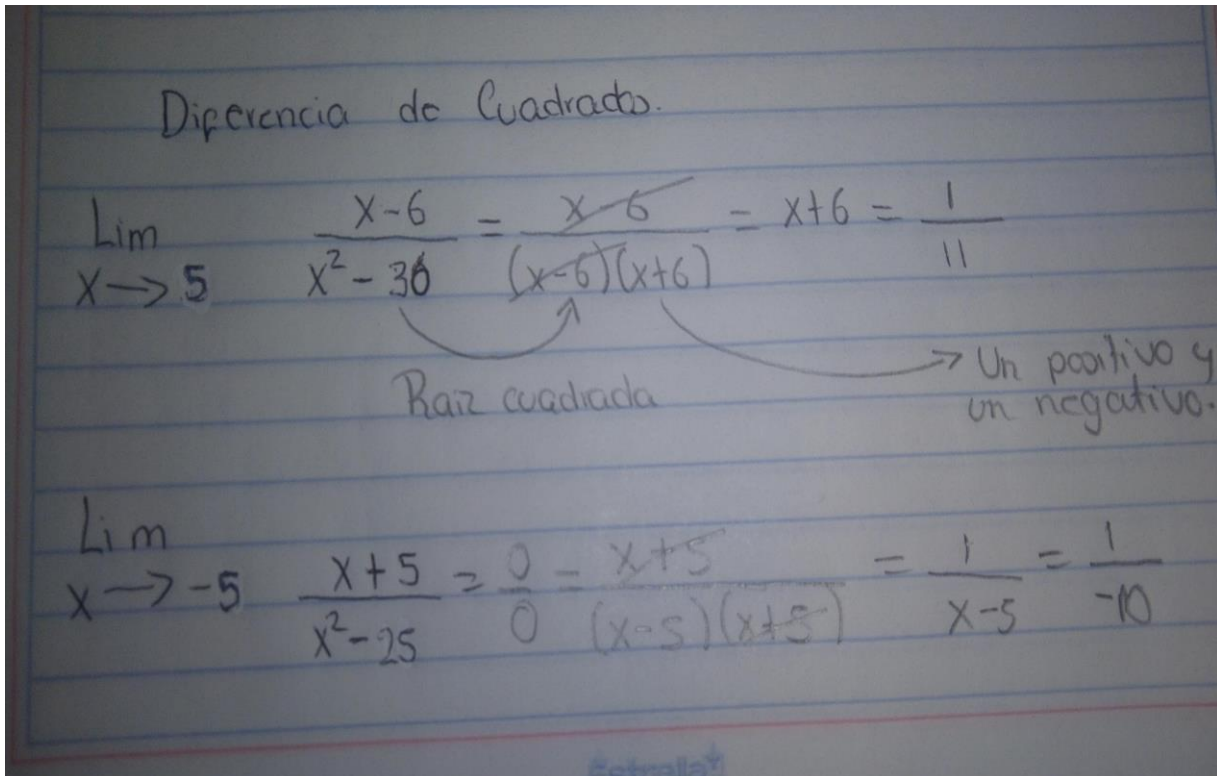 Diferencia de Cuadrados.
Lim x→5 x-6 / x²-36 = x-6 / (x-6)(x+6) = x+6 = 1/11
Raiz cuadrada
→ Un positivo y
un negativo.
Lim x→-5 x+5 / x²-25 = 0/0 = x+5 / (x-5)(x+5) = 1 / x-5 = 1 / -10
Estrella